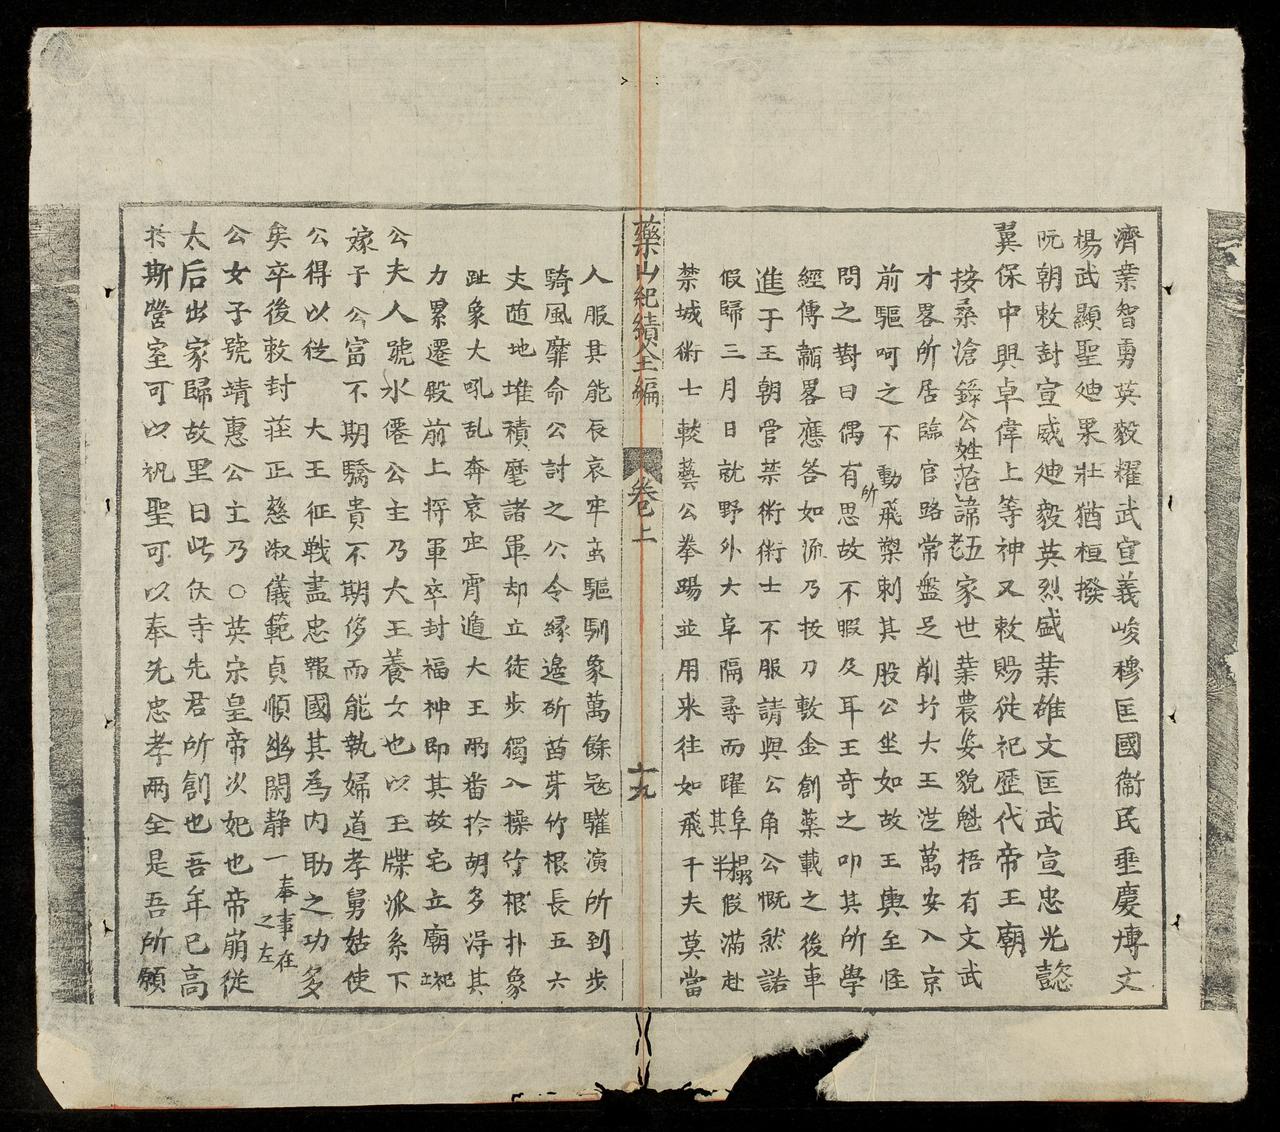 濟業智勇英毅耀武宣義峻穆匡國衞民垂慶愽文
楊武顯聖廸果壯猶桓撥
阮朝敕封宣威廸毅英烈盛葉雄文匡武宣忠光懿
翼保中興卓偉上等神又敕賜從祀歴代帝王廟
按桑滄錄公姓范諱五老家世業農姿貌魁梧有文武
才畧所居臨官路常盤足削圢大王涖萬安入京
前驅呵之不動飛槊刺其股公坐如故王輿至怪
問之對曰偶有所思故不暇及耳王竒之叩其所學
經傳韜畧應答如流乃拔刀敷金創藥載之後車
進于王朝管禁術術士不服請與公角公慨然諾
假歸三月日就野外大阜隔尋而躍阜其半搨假滿赴
禁城術士較藝公拳踢並用来徃如飛千夫莫當
藥山紀績全編
卷上
十九
人服其能辰哀牢蛮驅馴象萬餘冦驩演所到步
騎風靡命公討之公令緣邉斫酋芽竹根長五六
丈随地堆積麾諸軍却立徒步獨入操竹根扑象
趾象大吼乱奔哀牢宵遁大王兩畨拎胡多淂其
力累遷殿前上將軍卒封福神即其故宅立廟祀
公夫人號水僊公主乃大王養女也以王牒派系下
嫁于公富不期驕貴不期侈而能執婦道孝舅姑使
公得以從大王征戦盡忠報國其為内助之功多
矣卒後敕封莊正慈淑儀範貞順幽閑静一奉事在之左
公女子號靖惠公主乃○英宗皇帝次妃也帝崩従
太后出家歸故里日此伏寺先君所創也吾年已高
扵斯營室可以祝聖可以奉先忠孝兩全是吾所願